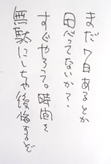 まだ7日あるとか
思ってないか?
すぐやろう。時間を
無駄にしちゃ後悔するぞ